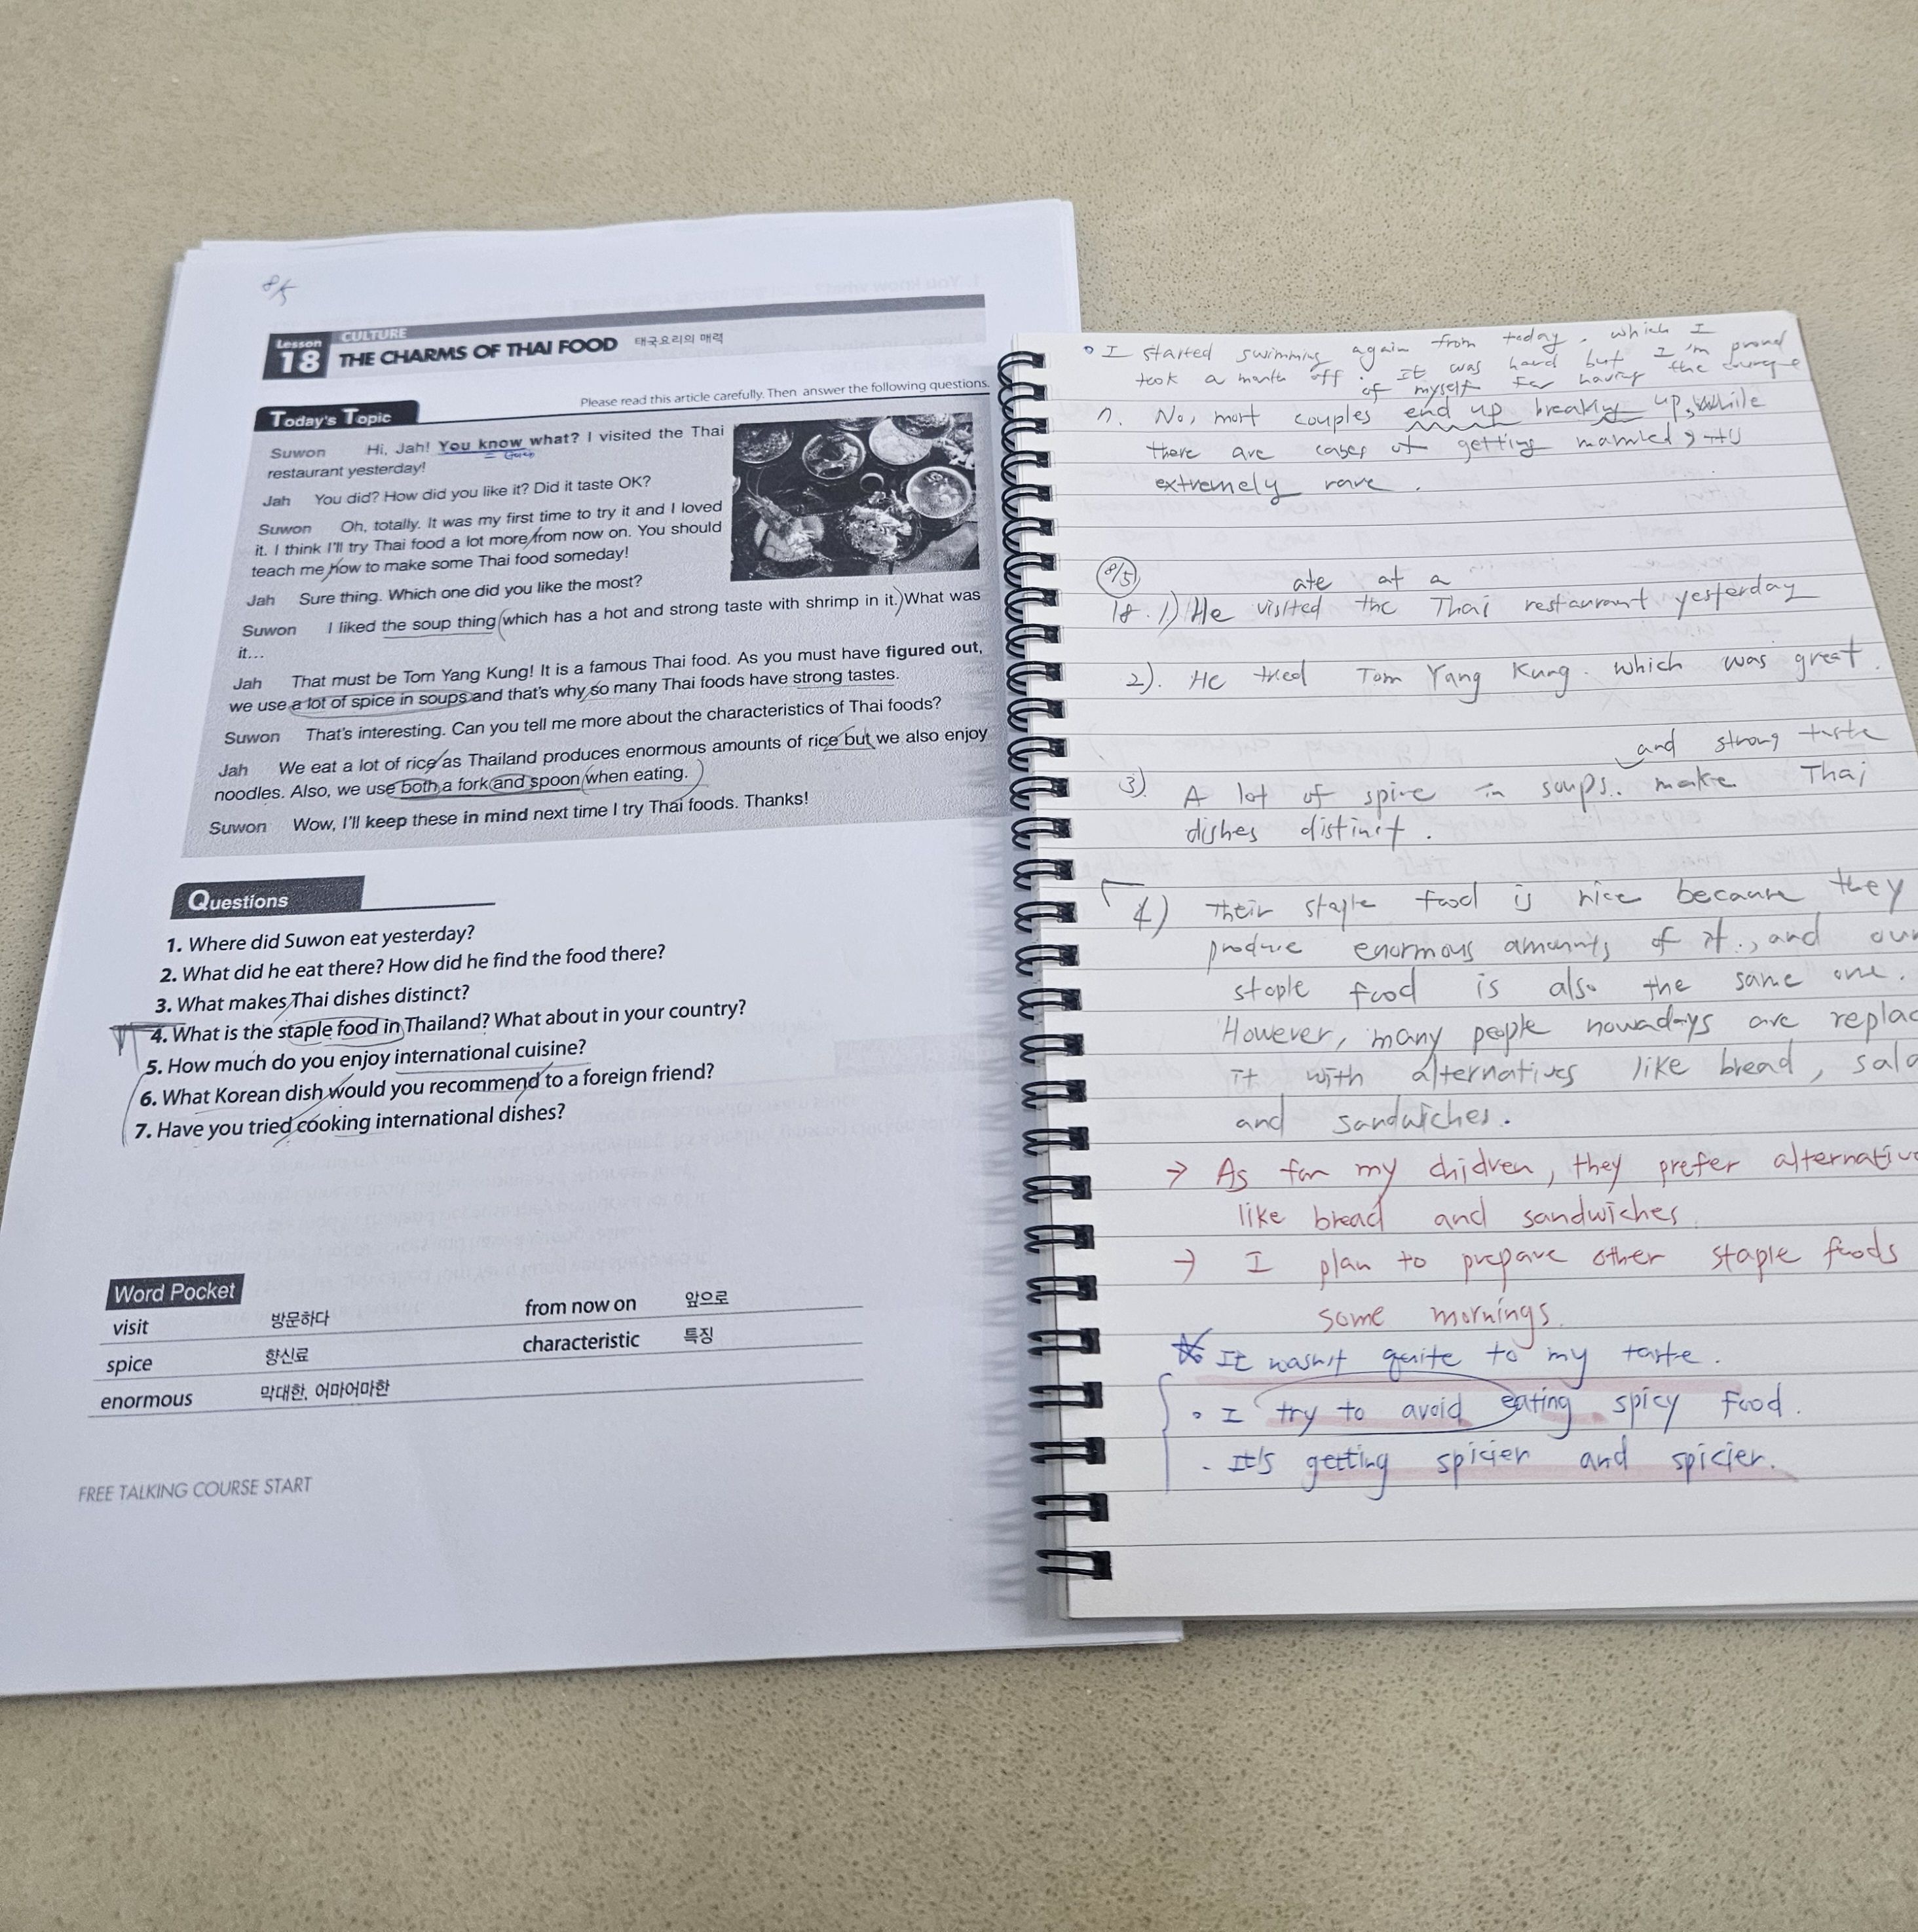 8/5
Lesson 18
CULTURE
THE CHARMS OF THAI FOOD 태국요리의 매력
Please read this article carefully. Then answer the following questions.
Today's Topic
Suwon Hi, Jah! You know what? I visited the Thai
restaurant yesterday!
Jah You did? How did you like it? Did it taste OK?
Suwon Oh, totally. It was my first time to try it and I loved
it. I think I'll try Thai food a lot more from now on. You should
teach me how to make some Thai food someday!
Jah Sure thing. Which one did you like the most?
Suwon I liked the soup thing which has a hot and strong taste with shrimp in it. What was
it...
Jah That must be Tom Yang Kung! It is a famous Thai food. As you must have figured out,
we use a lot of spice in soups and that's why so many Thai foods have strong tastes.
Suwon That's interesting. Can you tell me more about the characteristics of Thai foods?
Jah We eat a lot of rice as Thailand produces enormous amounts of rice but we also enjoy
noodles. Also, we use both a fork and spoon when eating.
Suwon Wow, I'll keep these in mind next time I try Thai foods. Thanks!
Questions
1. Where did Suwon eat yesterday?
2. What did he eat there? How did he find the food there?
3. What makes Thai dishes distinct?
4. What is the staple food in Thailand? What about in your country?
5. How much do you enjoy international cuisine?
6. What Korean dish would you recommend to a foreign friend?
7. Have you tried cooking international dishes?
Word Pocket
visit 방문하다 from now on 앞으로
spice 향신료 characteristic 특징
enormous 막대한, 어마어마한
FREE TALKING COURSE START
I started swimming again from today, which I
took a month off. It was hard but I'm proud
of myself for having the courage
7. No, most couples end up breaking up, while
there are cases of getting married, it's
extremely rare.
8/5
ate at a
18. 1) He visited the Thai restaurant yesterday
2). He tried Tom Yang Kung. which was great.
and strong taste
3) A lot of spice in soups. make Thai
dishes distinct.
4) Their staple food is rice because they
produce enormous amounts of it., and our
staple food is also the same one.
However, many people nowadays are replac
it with alternatives like bread, sala
and sandwiches.
→ As for my chidren, they prefer alternative
like bread and sandwiches.
→ I plan to prepare other staple foods
some mornings.
It wasn't quite to my taste.
I try to avoid eating spicy food.
It's getting spicier and spicier.